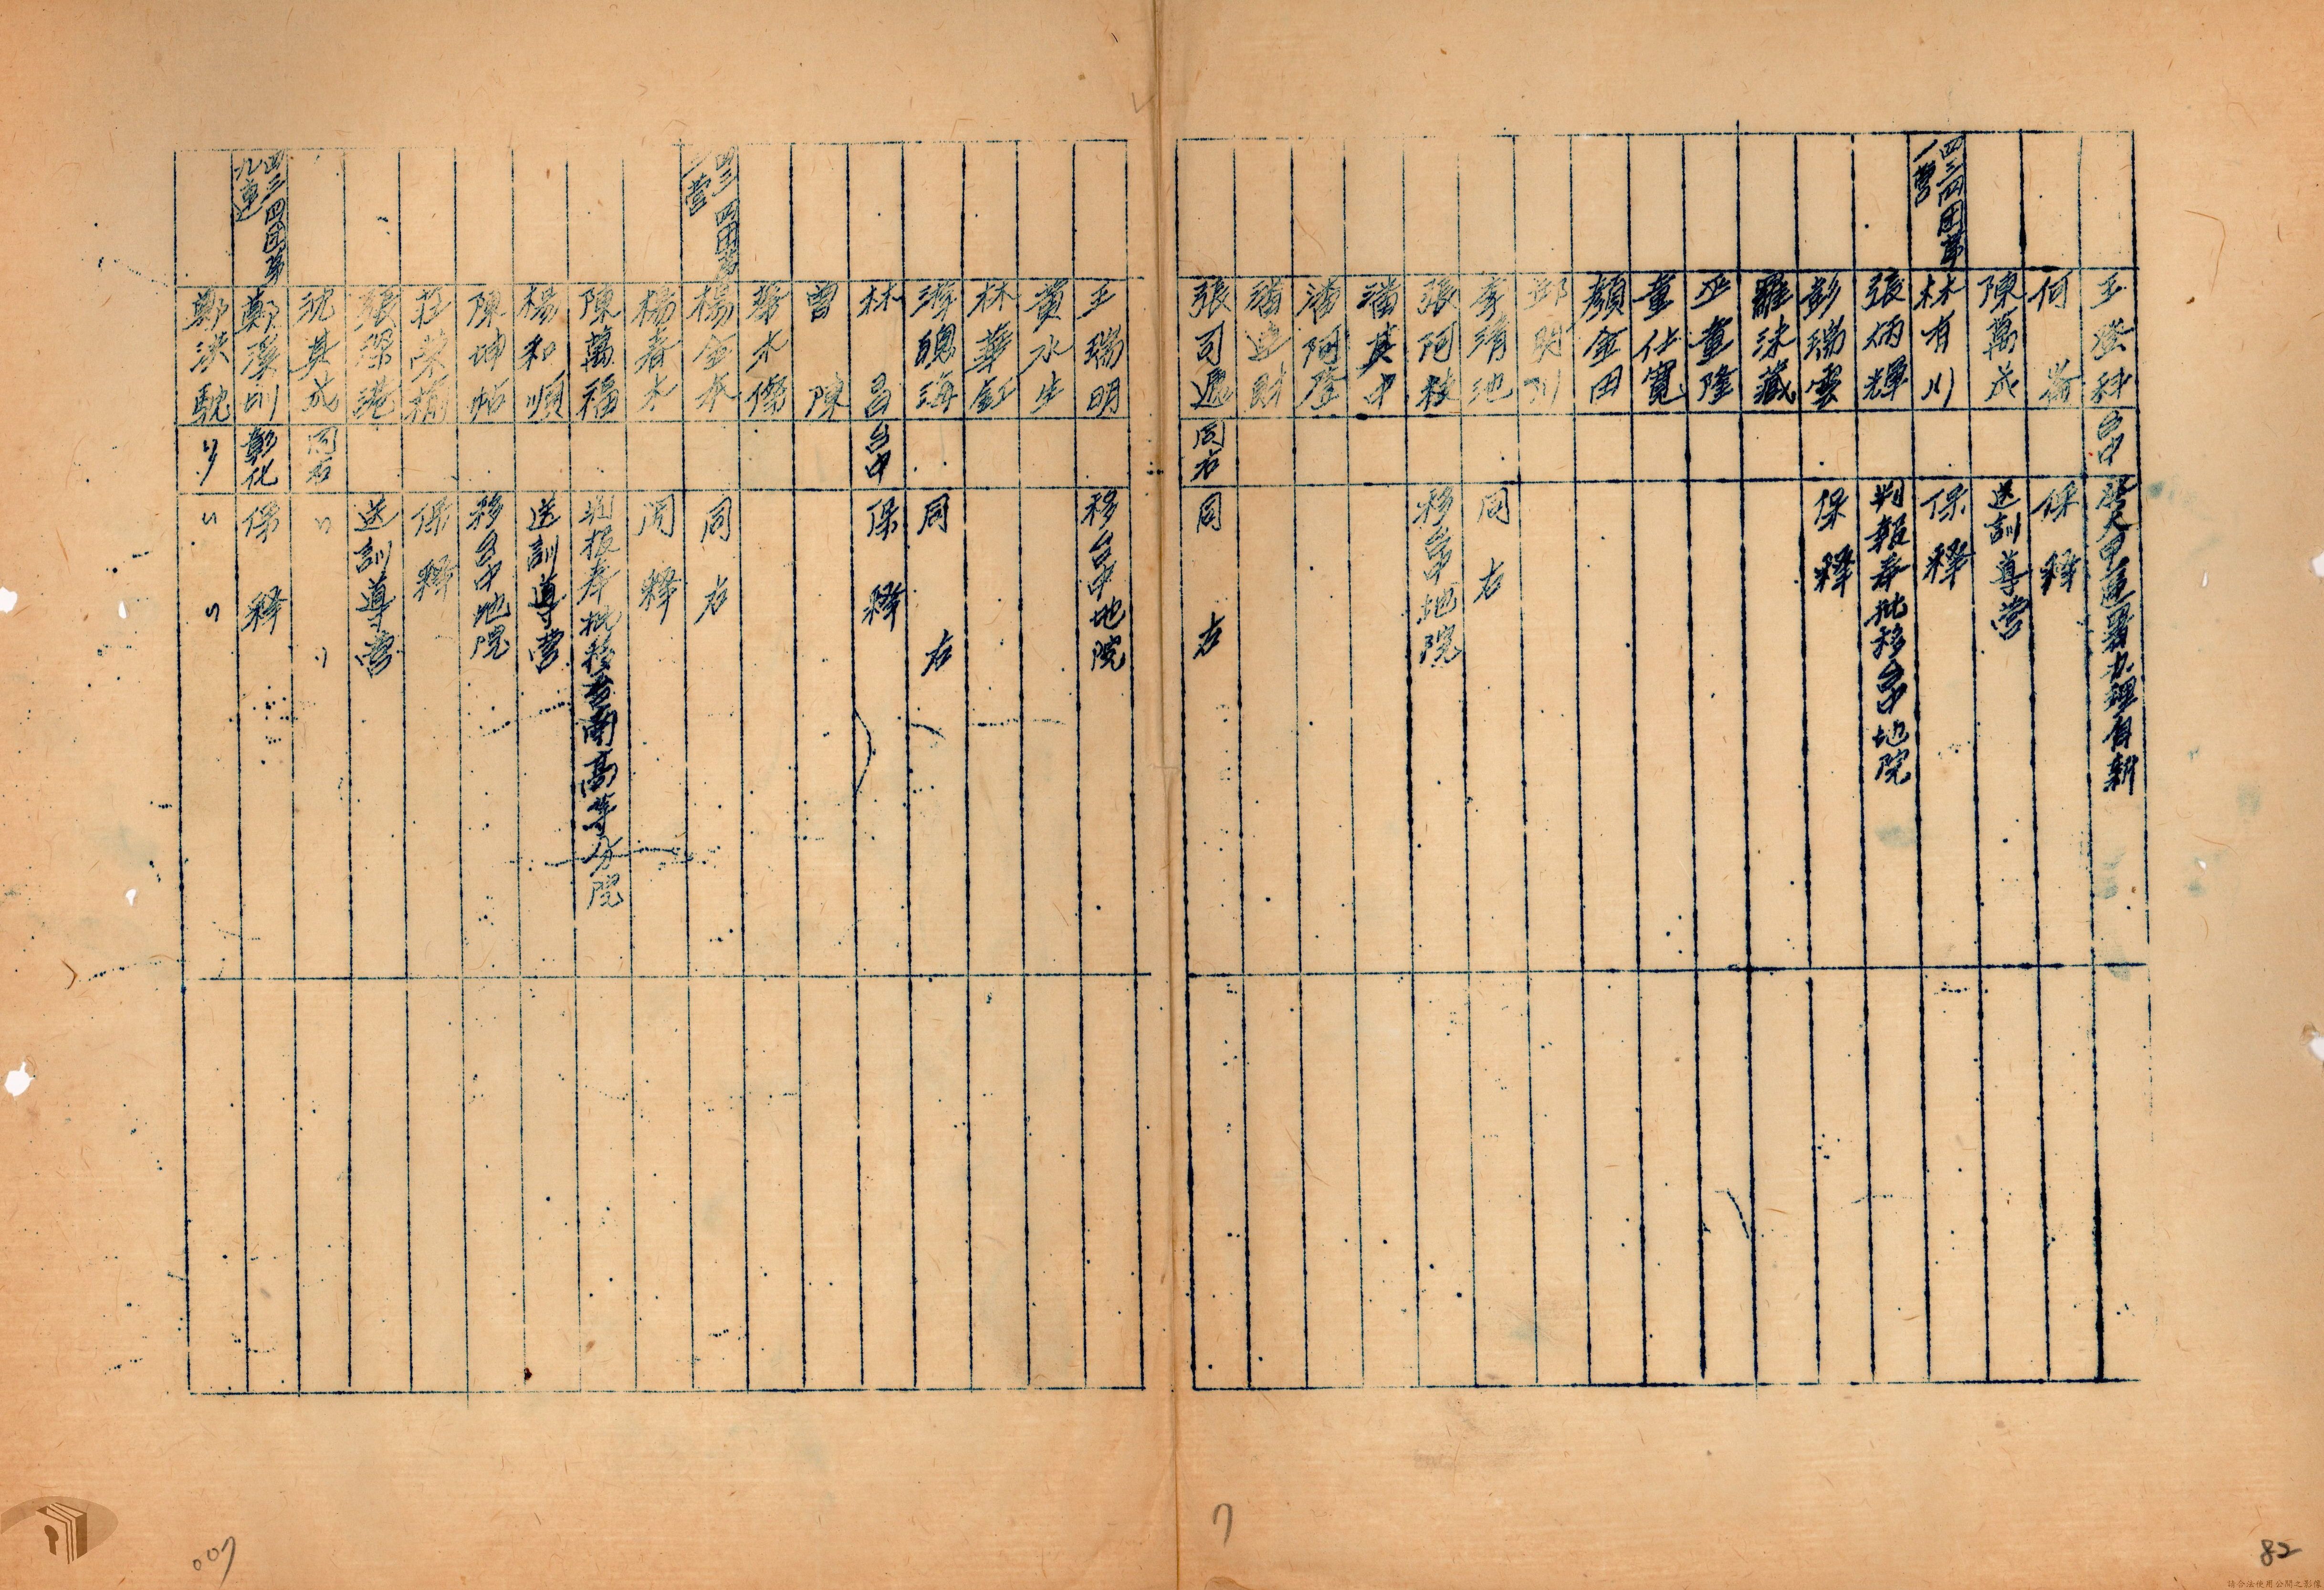 王登科 台中 發大甲區署办理自新
何
保釋
陳萬成 送訓導营
四三四团第一营 林有川 保釋
張炳輝 判報奉批移台中地院
彭瑞雲 保釋
羅沬藏
巫童隆
董仕寬
顏金田
邱川
李清池 同右
張阿枝 移台中地院
潘其中
潘阿登
潘进財
張司遞 同右 同右
王瑞明 移台中地院
黃水生
林華釭
游聰海 同右
林昌 台中 保釋
曾陳
水傑
四三四团第一营 楊金木 同右
楊春木 開釋
陳萬福 判报奉批移台南高等分院
楊和順 送訓導营
陳坤帖 移台中地院
莊荣 保釋
張深港 送訓導营
沈其成 同右 〃 〃
四三四团第九連 鄭溪圳 彰化 保釋
鄭洪騐 〃 〃 〃
7
007
82
請合法使用公開之影像